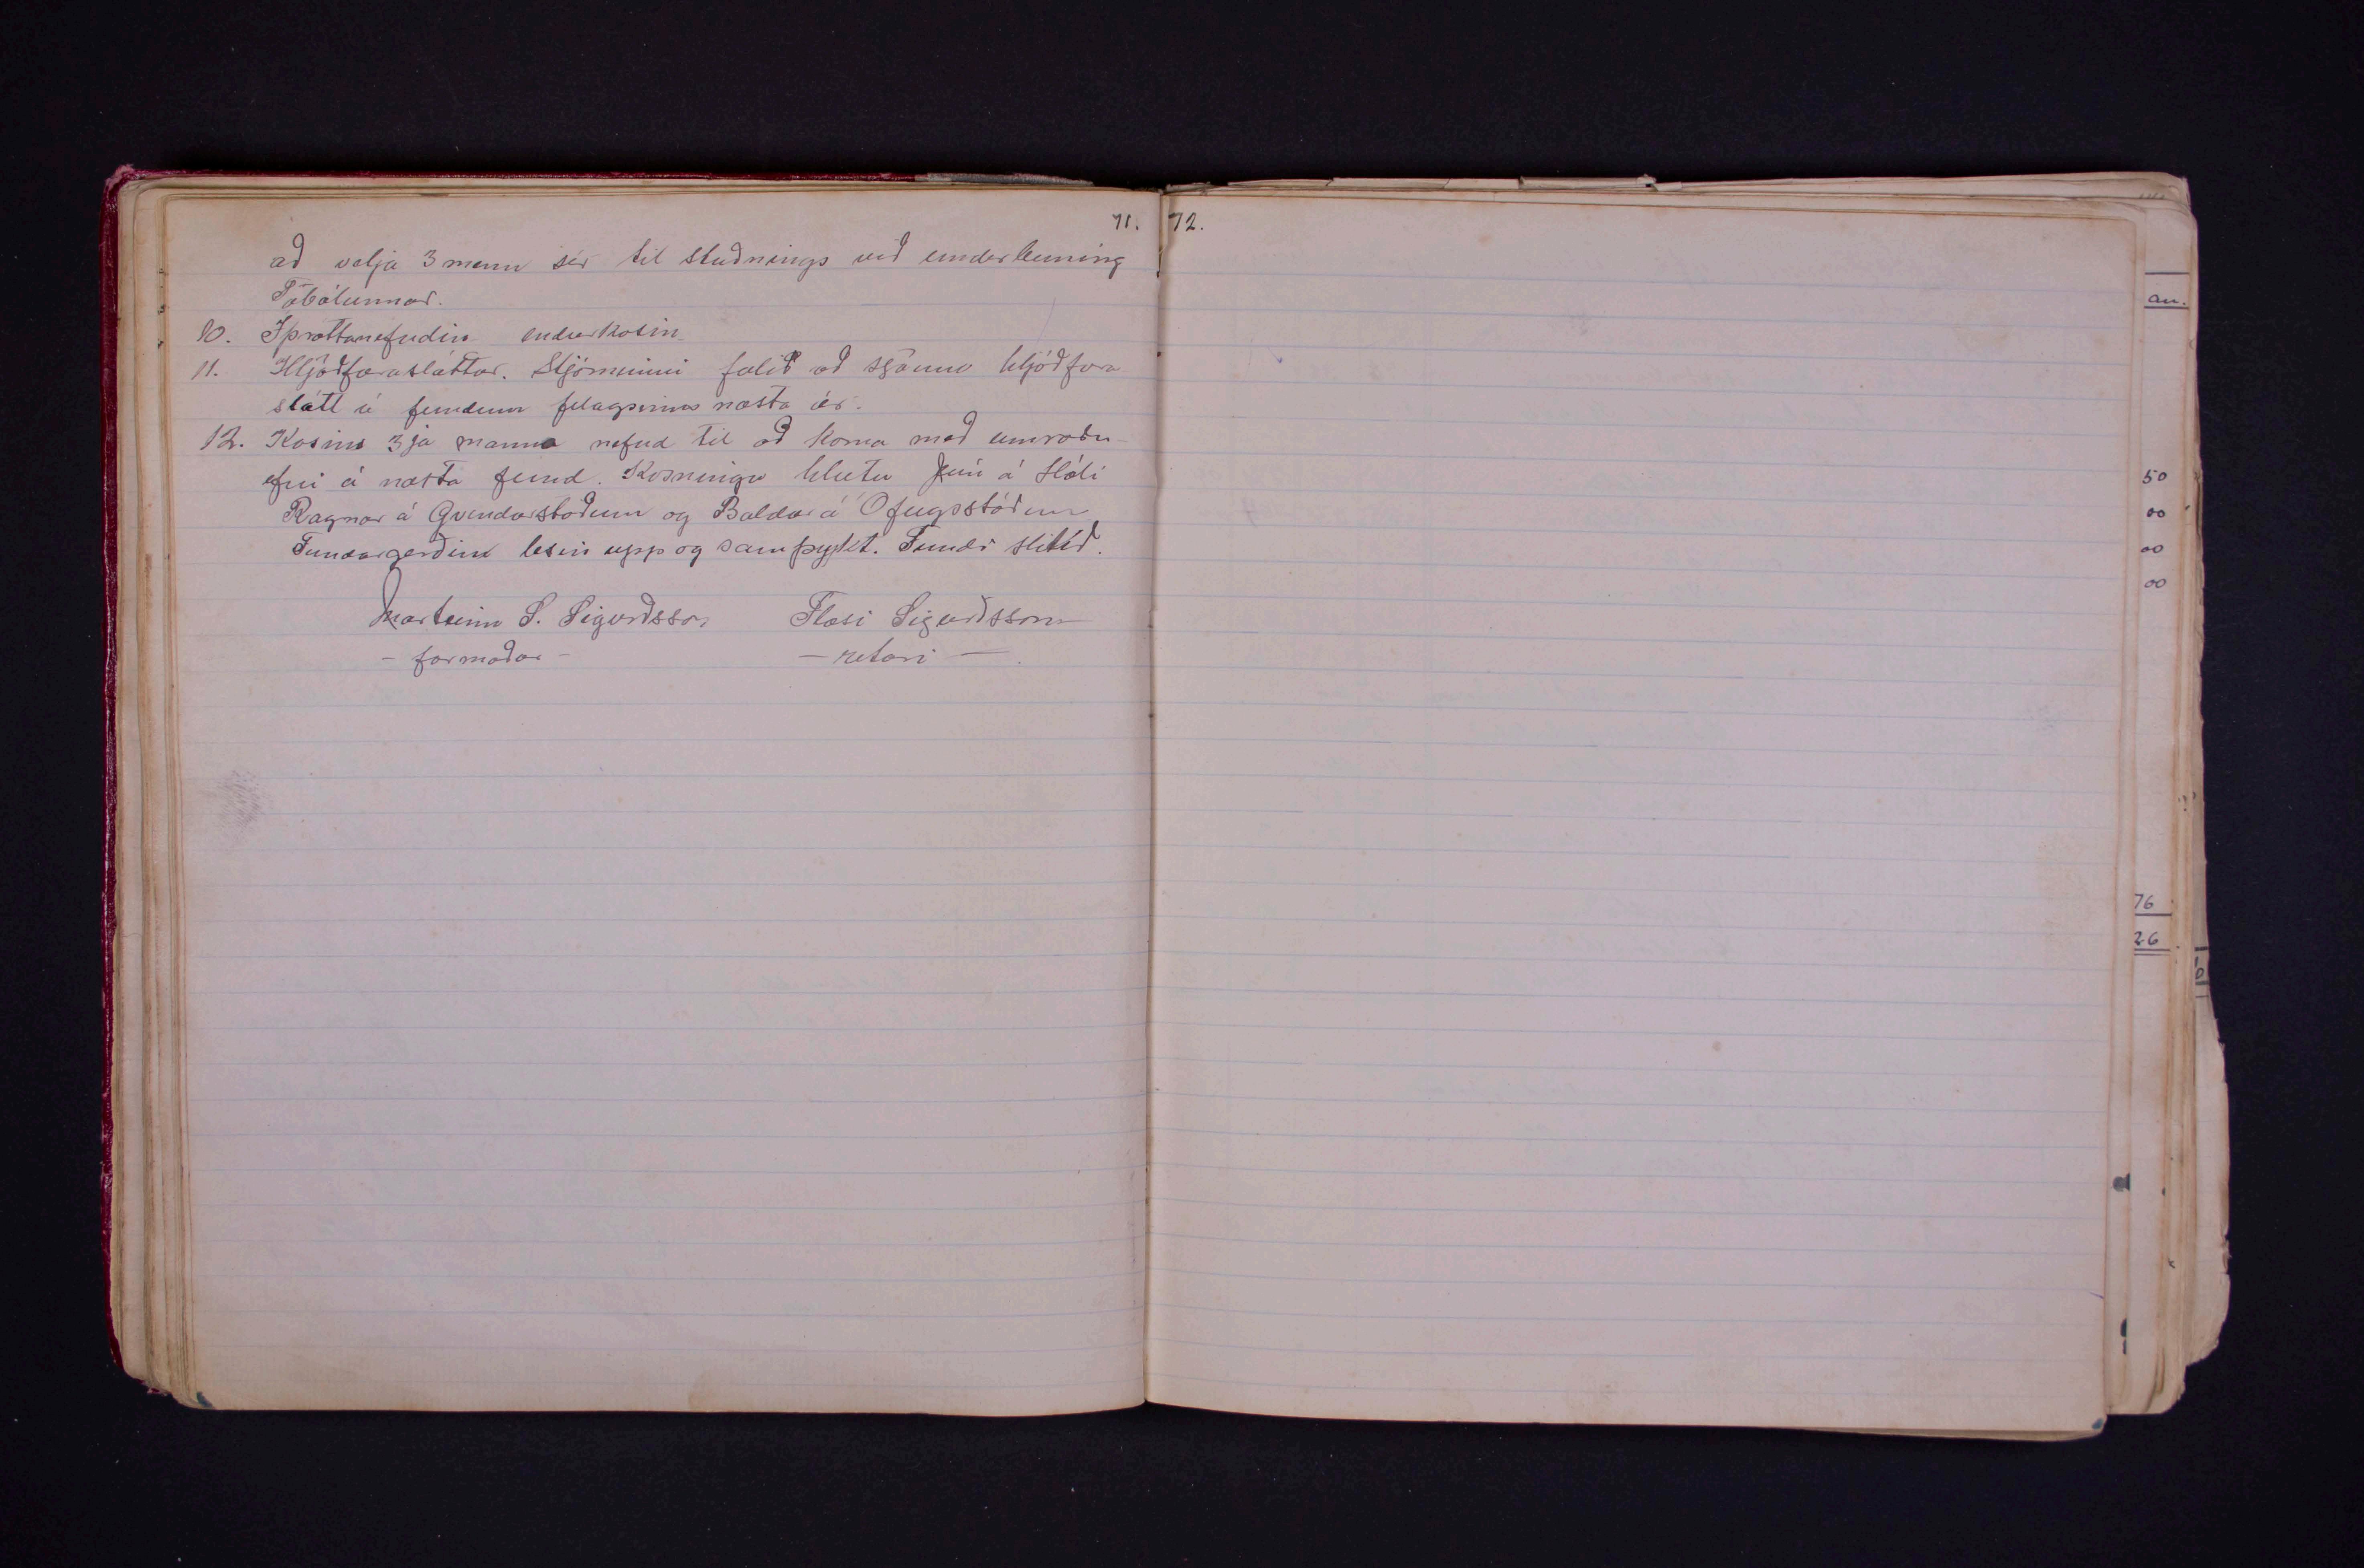 71.
að velja 3 menn sér til stuðnings við underbuning
Töbólunnar.
10. Íþrottanefndin endurkosin
11. Hljóðfærasláttur. Stjórninni falið að útvega hljóðfæra
slátt á fundum felagsins næsta ár.
12. Kosin 3ja manna nefnd til að koma með umræðu-
efni á næsta fund. Kosningu hlutu Jón á Hóli
Ragnar á Gvendarstöðum og Baldur á Ofeigsstöðum
Fundargerðin lesin upp og samþykt. Fundi slitið.
Marteinn S. Sigurðsson Flosi Sigurðsson
- formaður - - ritari -
72.
au.
50
00
00
00
76
26